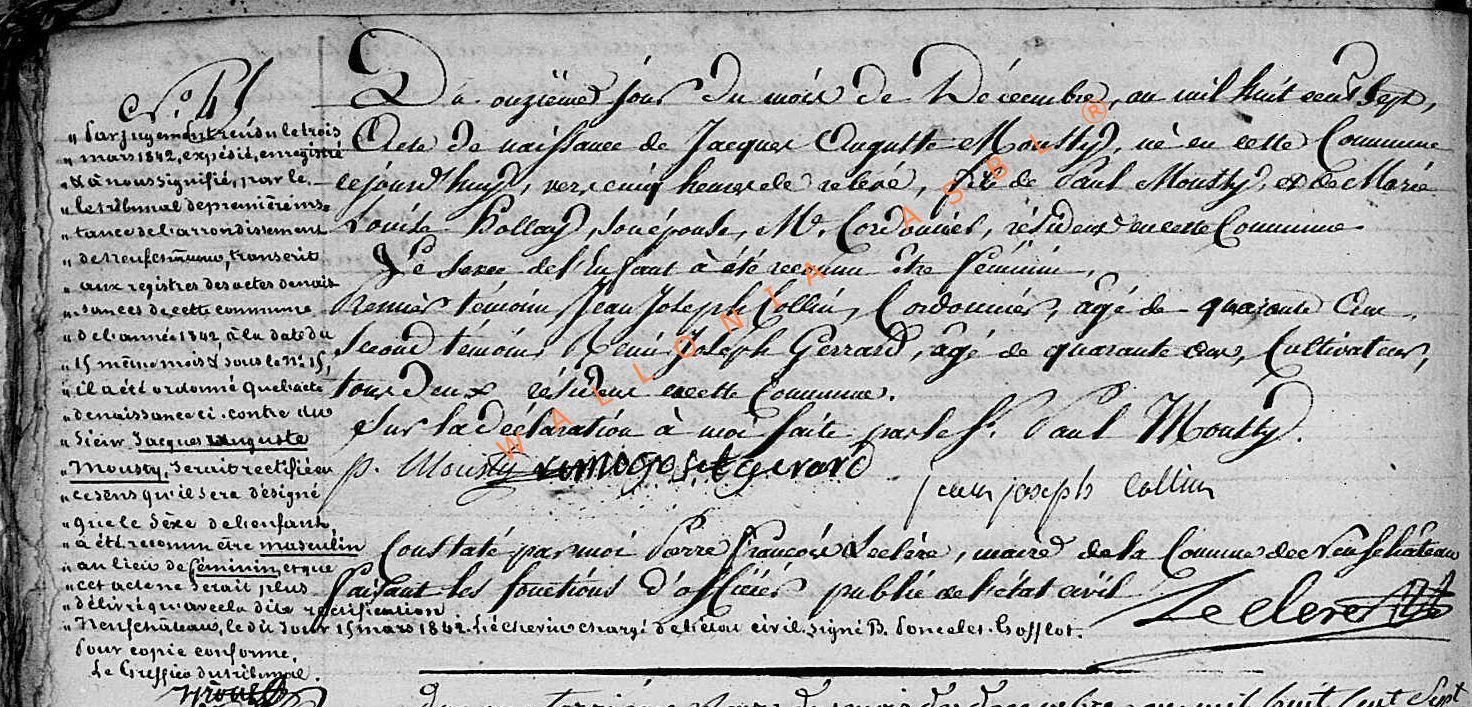 N.° 45
" Par jugement rendu le trois
" mars 1842, expédié, enregistré
" & à nous signifié, par le
" le tribunal de première ins-
" tance de l'arrondissement
" de neufchateau, transcrit
" aux registres des actes de nais
" sances de cette commune
" de l'année 1842, à la date du
" 15 même mois & sous le N.° 15,
" il a été ordonné que l'acte
" de naissance ci-contre du
" Sieur Jacques auguste
" Mousty, serait rectifié en
" ce sens qu'il sera désigné
" que le Séxe de l'enfant
" à été reconnu être masculin
" au lieu de féminin, et que
" cet acte ne serait plus
" délivré qu'avec la dite rectification
" Neufchâteau, le dit Jour 15 mars 1842. L'échevin chargé de l'état civil, signé B. Poncelet.
Pour copie conforme,
Le Greffier du tribunal.
Du onzième jour du mois de Décembre, an mil huit cent Sept,
Acte de naissance de Jacques Auguste Mousty, né en cette Commune
cejourd'huy, vers cinq heures de relevé, fils de Paul Mousty, et de Marie
Louise Hollay, son épouse, Md. Cordonnier, résident en cette Commune.
Le Sexe de l'Enfant à été reconnu être féminin,
Premier témoin Jean Joseph Collin, Cordonnier, âgé de quarante Cinq,
Second témoin Joseph Gerrard, âgé de quarante deux, Cultivateur,
tous deux résident en cette Commune.
Sur la déclaration à moi faite par le Sr. Paul Mousty.
p. Mousty gerard
jean joseph Collin
Constaté par moi Pierre François Leclere, maire de la Commune de Neufchâteau
faisant les fonctions d'officier public de l'état civil
Leclere
WALLONIA ASBL ®